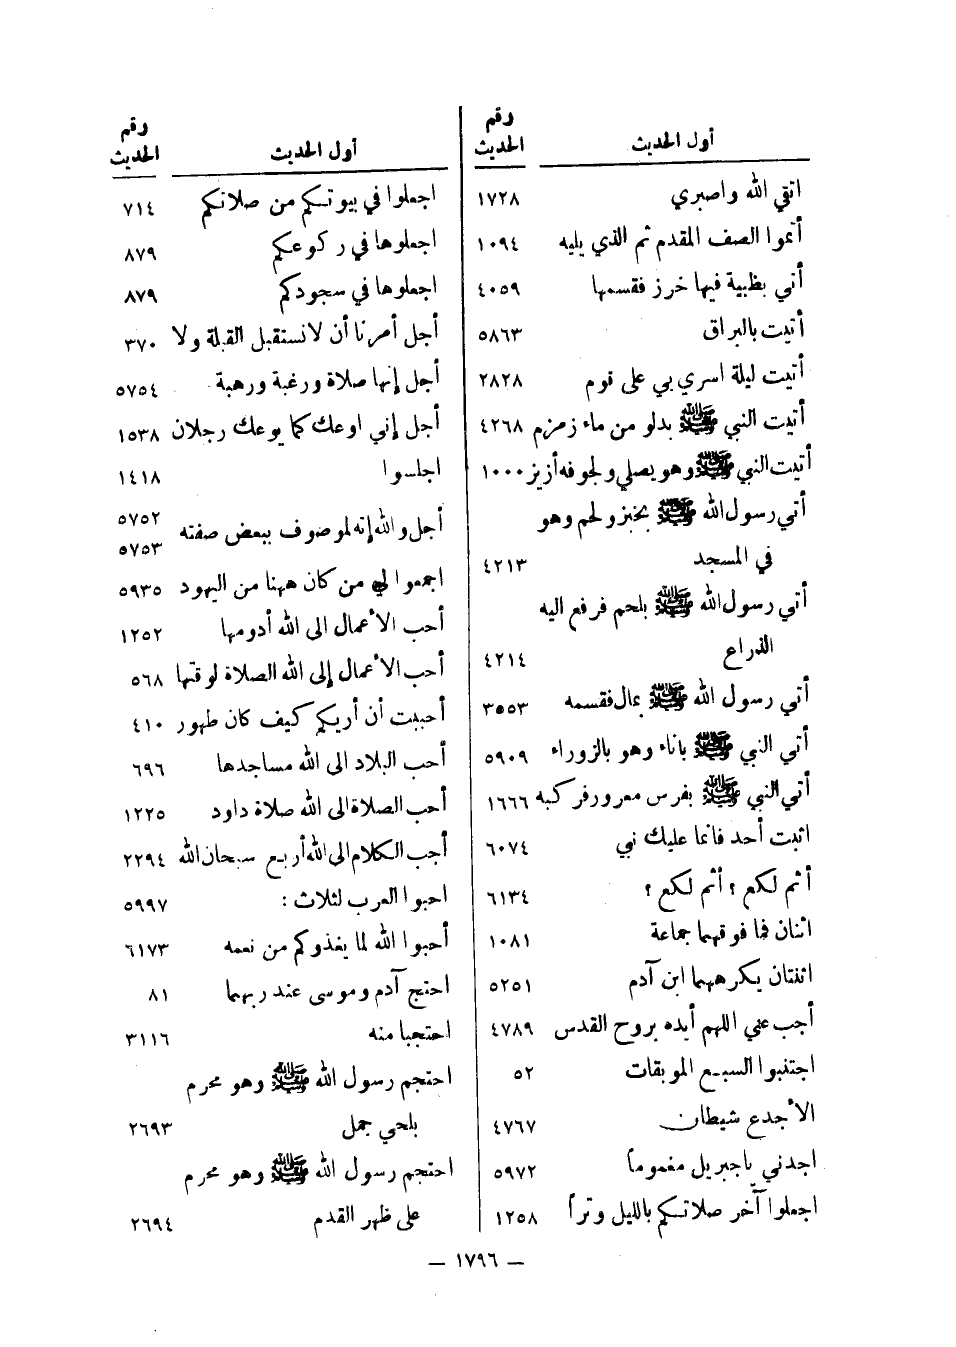 أول الحديث رقم الحديث
اتقي الله واصبري ١٧٢٨
أتموا الصف المقدم ثم الذي يليه ١٠٩٤
أتي بظبية فيها خرز فقسمها ٤٠٥٩
أتيت بالبراق ٥٨٦٣
أتيت ليلة اسري بي على قوم ٢٨٢٨
أتيت النبي ﷺ بدلو من ماء زمزم ٤٢٦٨
أتيت النبي ﷺ وهو يصلي ولجوفه أزيز ١٠٠٠
أتي رسول الله ﷺ بخبز ولحم وهو
في المسجد ٤٢١٣
أتي رسول الله ﷺ بلحم فرفع اليه
الذراع ٤٢١٤
أتي رسول الله ﷺ بمال فقسمه ٣٥٥٣
أتي النبي ﷺ باناء وهو بالزوراء ٥٩٠٩
أتي النبي ﷺ بفرس معرور فركبه ١٦٦٦
اثبت أحد فانما عليك نبي ٦٠٧٤
أثم لكع ؟ أثم لكع ؟ ٦١٣٤
اثنان فما فوقهما جماعة ١٠٨١
اثنتان يكرههما ابن آدم ٥٢٥١
أجب عني اللهم أيده بروح القدس ٤٧٨٩
اجتنبوا السبع الموبقات ٥٢
الأجدع شيطان ٤٧٦٧
اجدني ياجبريل مغموماً ٥٩٧٢
اجعلوا آخر صلاتكم بالليل وتراً ١٢٥٨
أول الحديث رقم الحديث
اجعلوا في بيوتكم من صلاتكم ٧١٤
اجعلوها في ركوعكم ٨٧٩
اجعلوها في سجودكم ٨٧٩
أجل أمرنا أن لانستقبل القبلة ولا ٣٧٠
أجل إنها صلاة ورغبة ورهبة ٥٧٥٤
أجل إني اوعك كما يوعك رجلان ١٥٣٨
اجلسوا ١٤١٨
أجل والله إنه لموصوف ببعض صفته ٥٧٥٢ ٥٧٥٣
اجمعوا لي من كان ههنا من اليهود ٥٩٣٥
أحب الأعمال الى الله أدومها ١٢٥٢
أحب الأعمال إلى الله الصلاة لوقتها ٥٦٨
أحببت أن أريكم كيف كان طهور ٤١٠
أحب البلاد الى الله مساجدها ٦٩٦
أحب الصلاة الى الله صلاة داود ١٢٢٥
أحب الكلام الى الله أربع سبحان الله ٢٢٩٤
احبوا العرب لثلاث : ٥٩٩٧
أحبوا الله لما يغذوكم من نعمه ٦١٧٣
احتج آدم وموسى عند ربهما ٨١
احتجبا منه ٣١١٦
احتجم رسول الله ﷺ وهو محرم
بلحي جمل ٢٦٩٣
احتجم رسول الله ﷺ وهو محرم
على ظهر القدم ٢٦٩٤
— ١٧٩٦ —